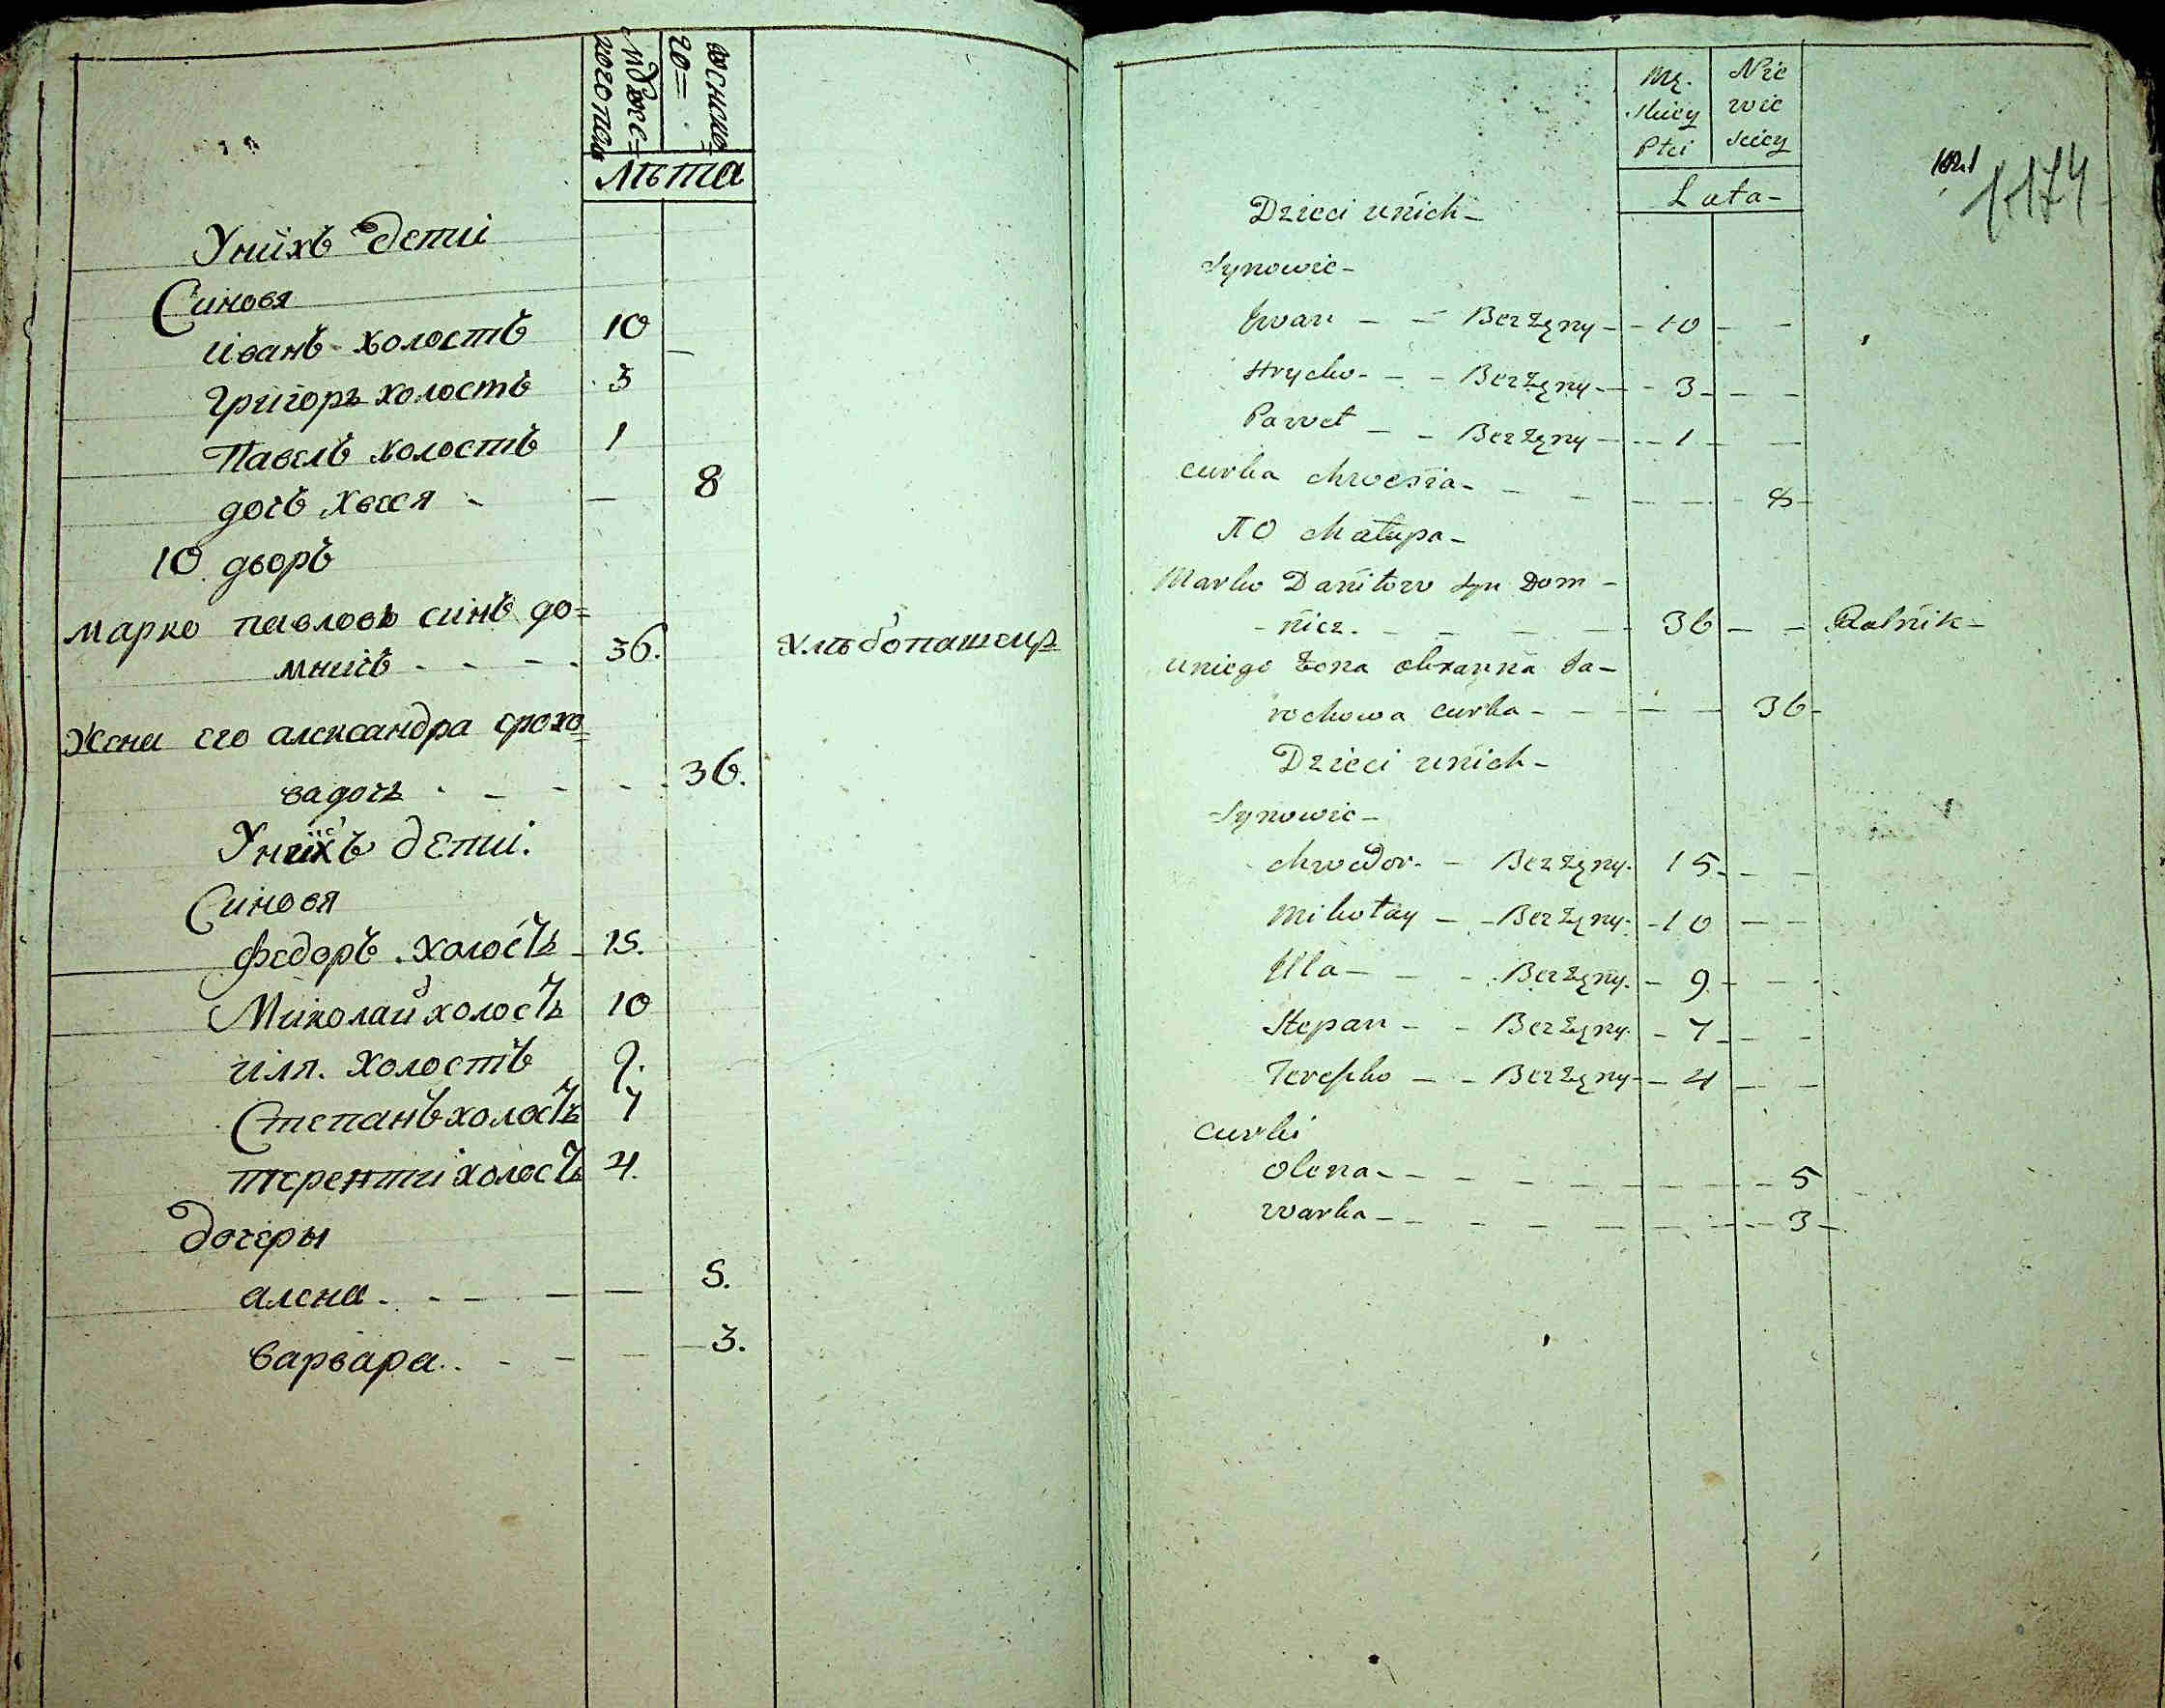 Мужес=
каго пола
женска
го=
Лѣта
У нихъ дети
Синовя
Иванъ холостъ 10 —
Григоръ холостъ 3
Павелъ холостъ 1
дочъ Хвеся - — 8
10 дворъ
Марко павловъ синъ до=
мничъ - - - - 36. Хлѣбопашецъ
Жена его александра
ва дочъ - - - - - 36.
У нихъ дети.
Синовя
Федоръ. холостъ - 15.
Миколай холостъ 10
иля. холостъ 9.
Степанъ холостъ 7
терентий холостъ 4.
дочеры
алена. - - - — — 5.
варвара. . - - — 3.
Mę-
skiey
Płci
Nie
wie
sciey
Lata -
1174
Dzieci u nich -
Synowie -
Iwan - - Bezżęny - - 10 - -
Hrycko - - - Bezżęny - - 3 - - -
Paweł - - Bezżęny - - - 1 - -
curka Chwesia - - - - - - 8 -
10 Chałupa -
Marko Daniłow syn Dom -
- nicz. - - - - - 36 - - Rolnik -
u niego żona
rochowa curka - - - - 36 -
Dzieci u nich -
Synowie -
Chwedor. - Bezżęny. 15 - - -
Mikołay - - Bezżęny. - 10 - -
Illa - - - Bezżęny. - 9 - - -
Stepan - - Bezżęny. - 7 - - -
Tereszko - - Bezżęny - - 4 - -
curki
Olena - - - - - - - - - 5
Warka - - - - - - - - - 3 -